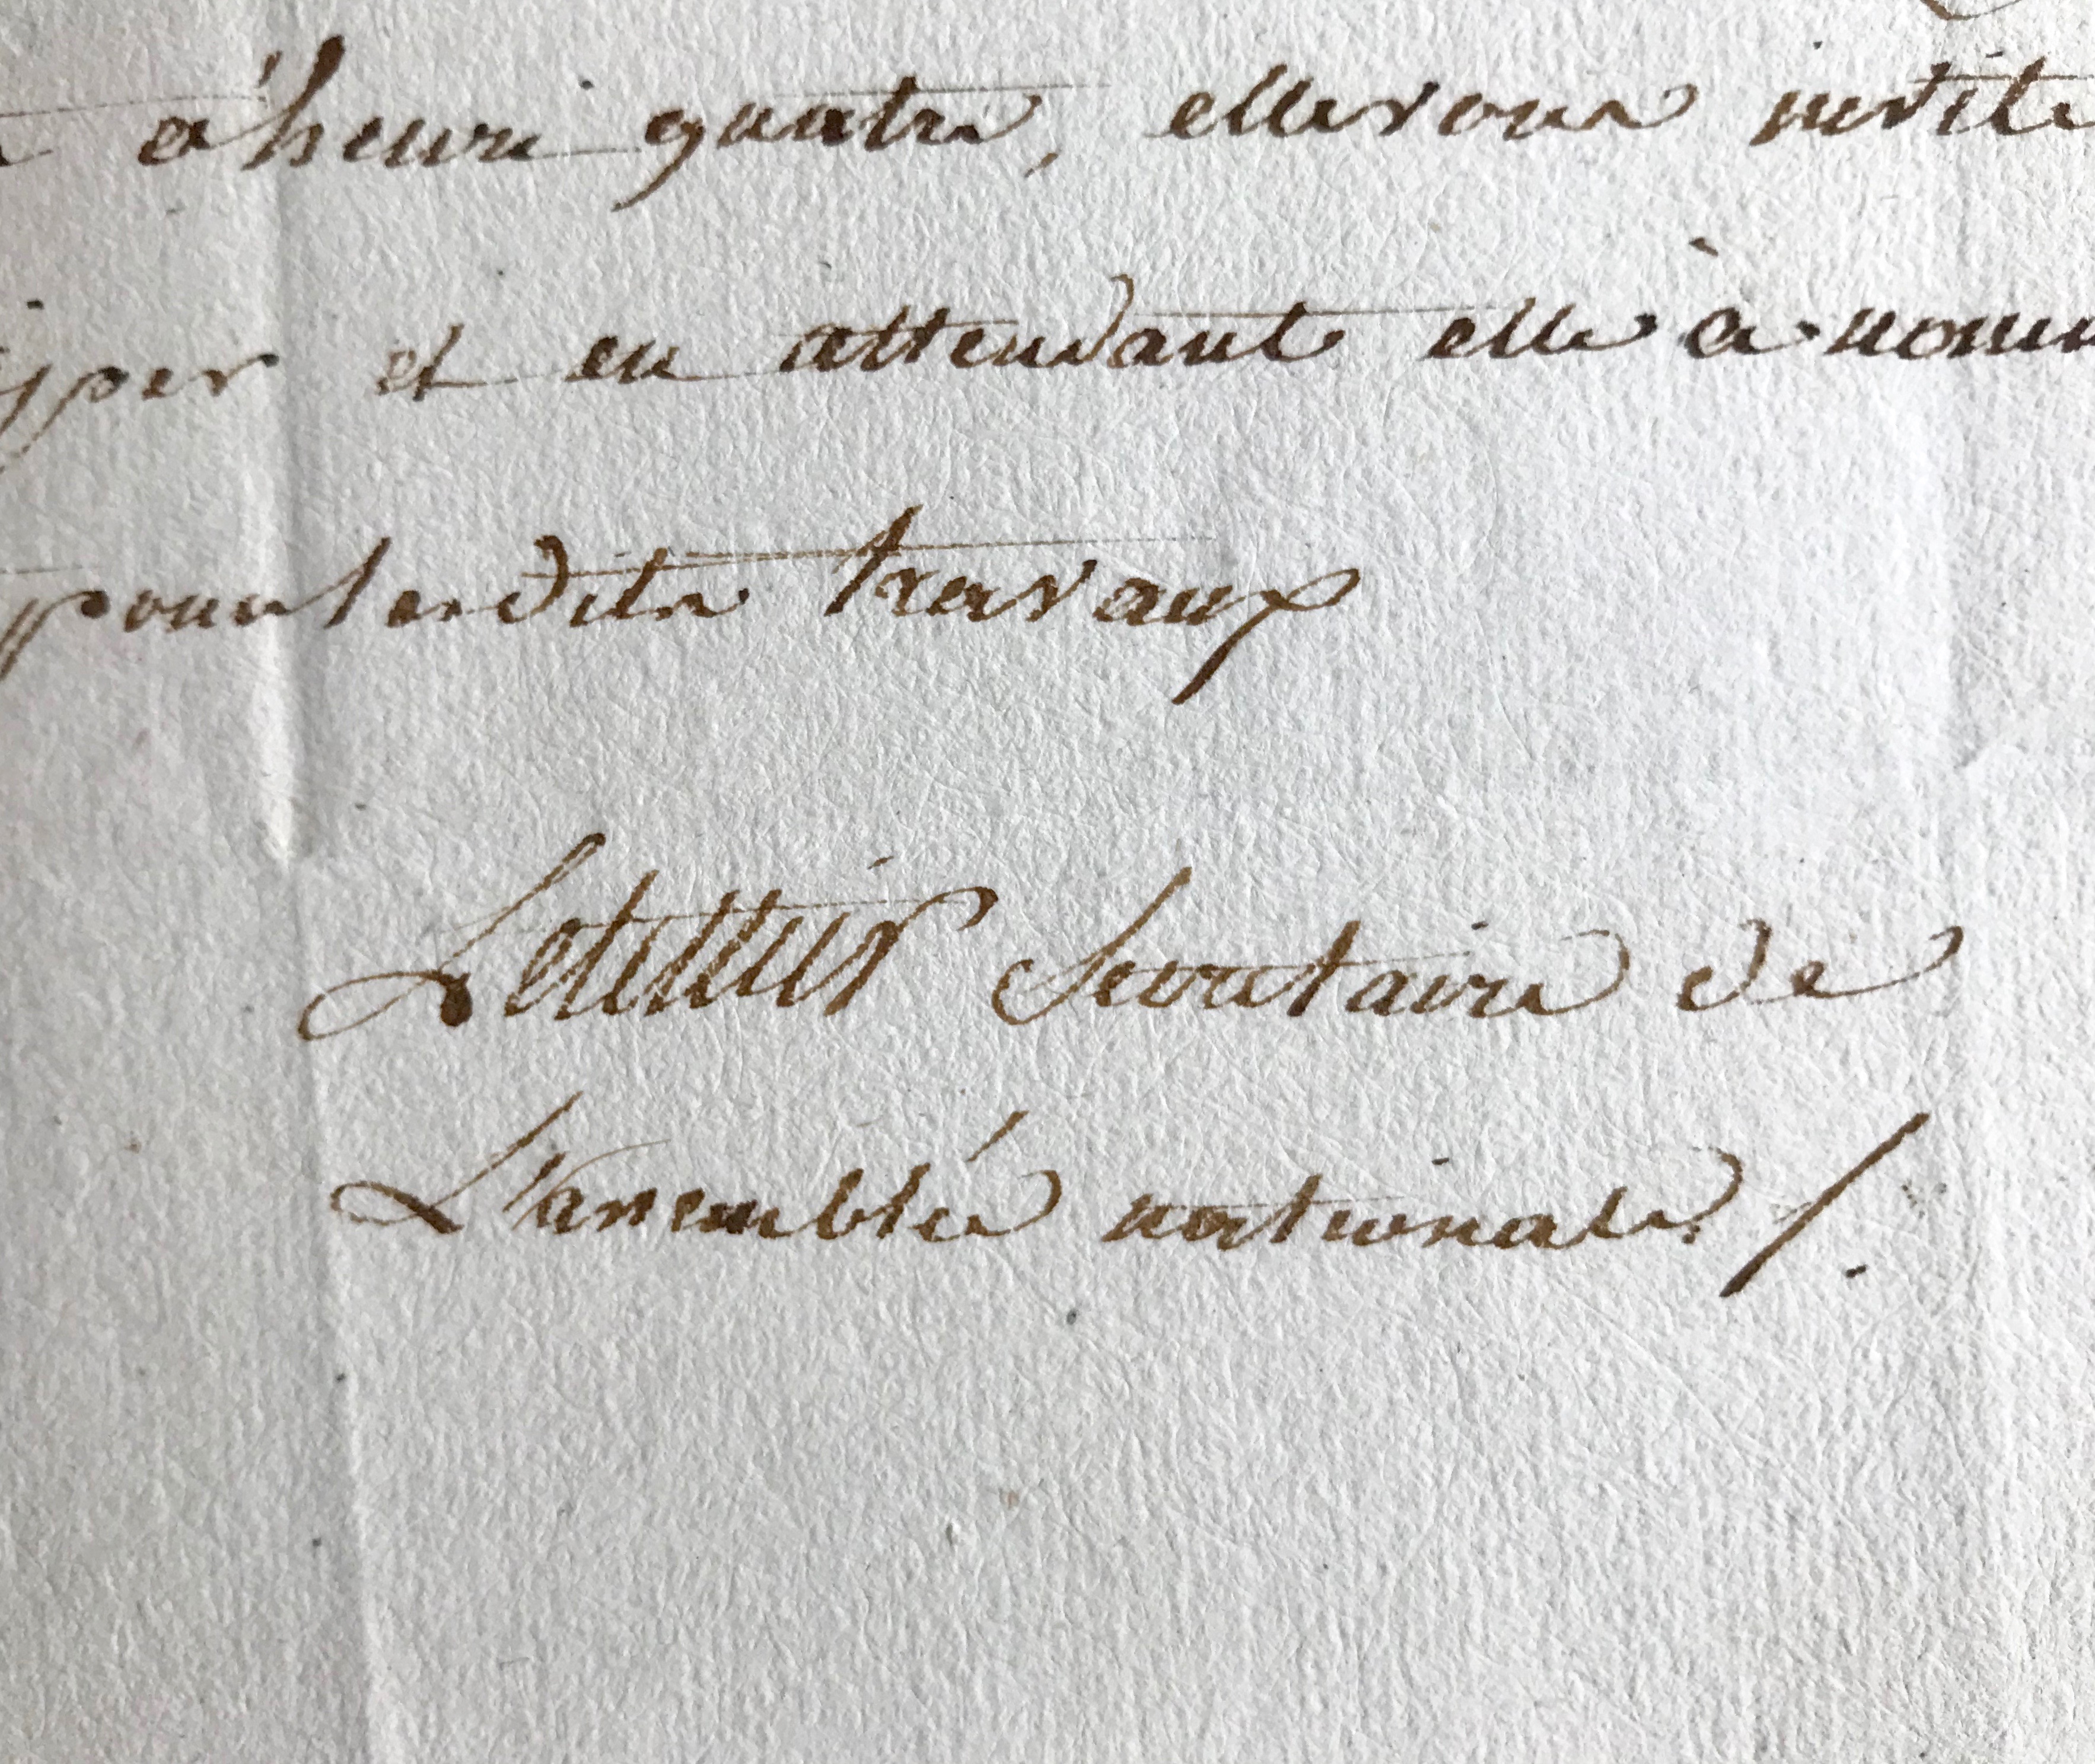 à heure quatre, elle vous invite
et en attendant elle à nomm
pour lesdits travaux
Letellier Secretaire de
L'assemblée nationale /.